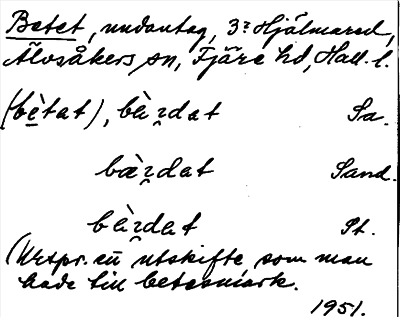 Betet, undantag, 3:Hjälmared,
Älvsåkers sn, Fjäre hd, Hall. l.
(bètat), bæ̀zdat Sa.
bæ̀zdat Sand.
bæ̀zdat St.
(Urspr. en utskifte som man
hade till betesmark.
1951.